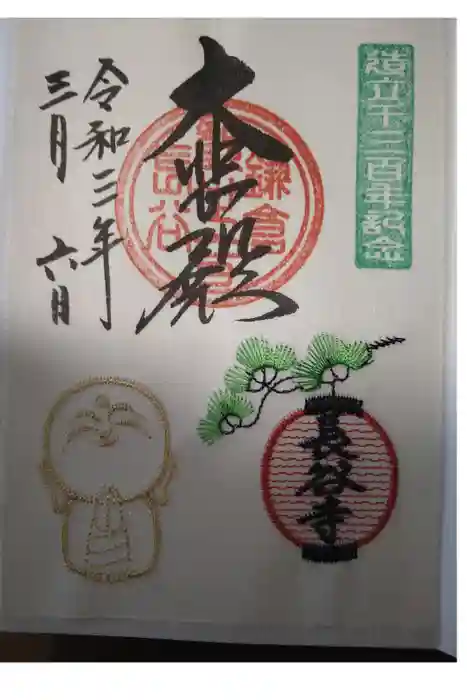 造立千三百年記念
大悲殿
鎌倉
長谷
令和三年
三月六日
長谷寺